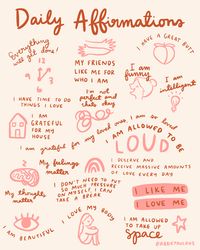 Daily Affirmations
Everything
will get done!
MY FRIENDS
LIKE ME FOR
WHO I AM
I HAVE A GREAT BUTT
I am
funny
I am
intelligent
I HAVE TIME TO DO
THINGS I LOVE
I'm not
perfect and
that's okay
I AM
GRATEFUL
FOR MY
HOUSE
I am grateful for my loved ones, I am so loved
I AM ALLOWED TO BE
LOUD
My feelings
matter
I DESERVE AND
RECEIVE MASSIVE AMOUNTS
OF LOVE EVERY DAY
My thoughts
matter
I DON'T NEED TO PUT
SO MUCH PRESSURE
ON MYSELF, I CAN
TAKE A BREAK
I LIKE ME
I LOVE ME
I AM BEAUTIFUL
I LOVE MY BODY
I AM ALLOWED
TO TAKE UP
space